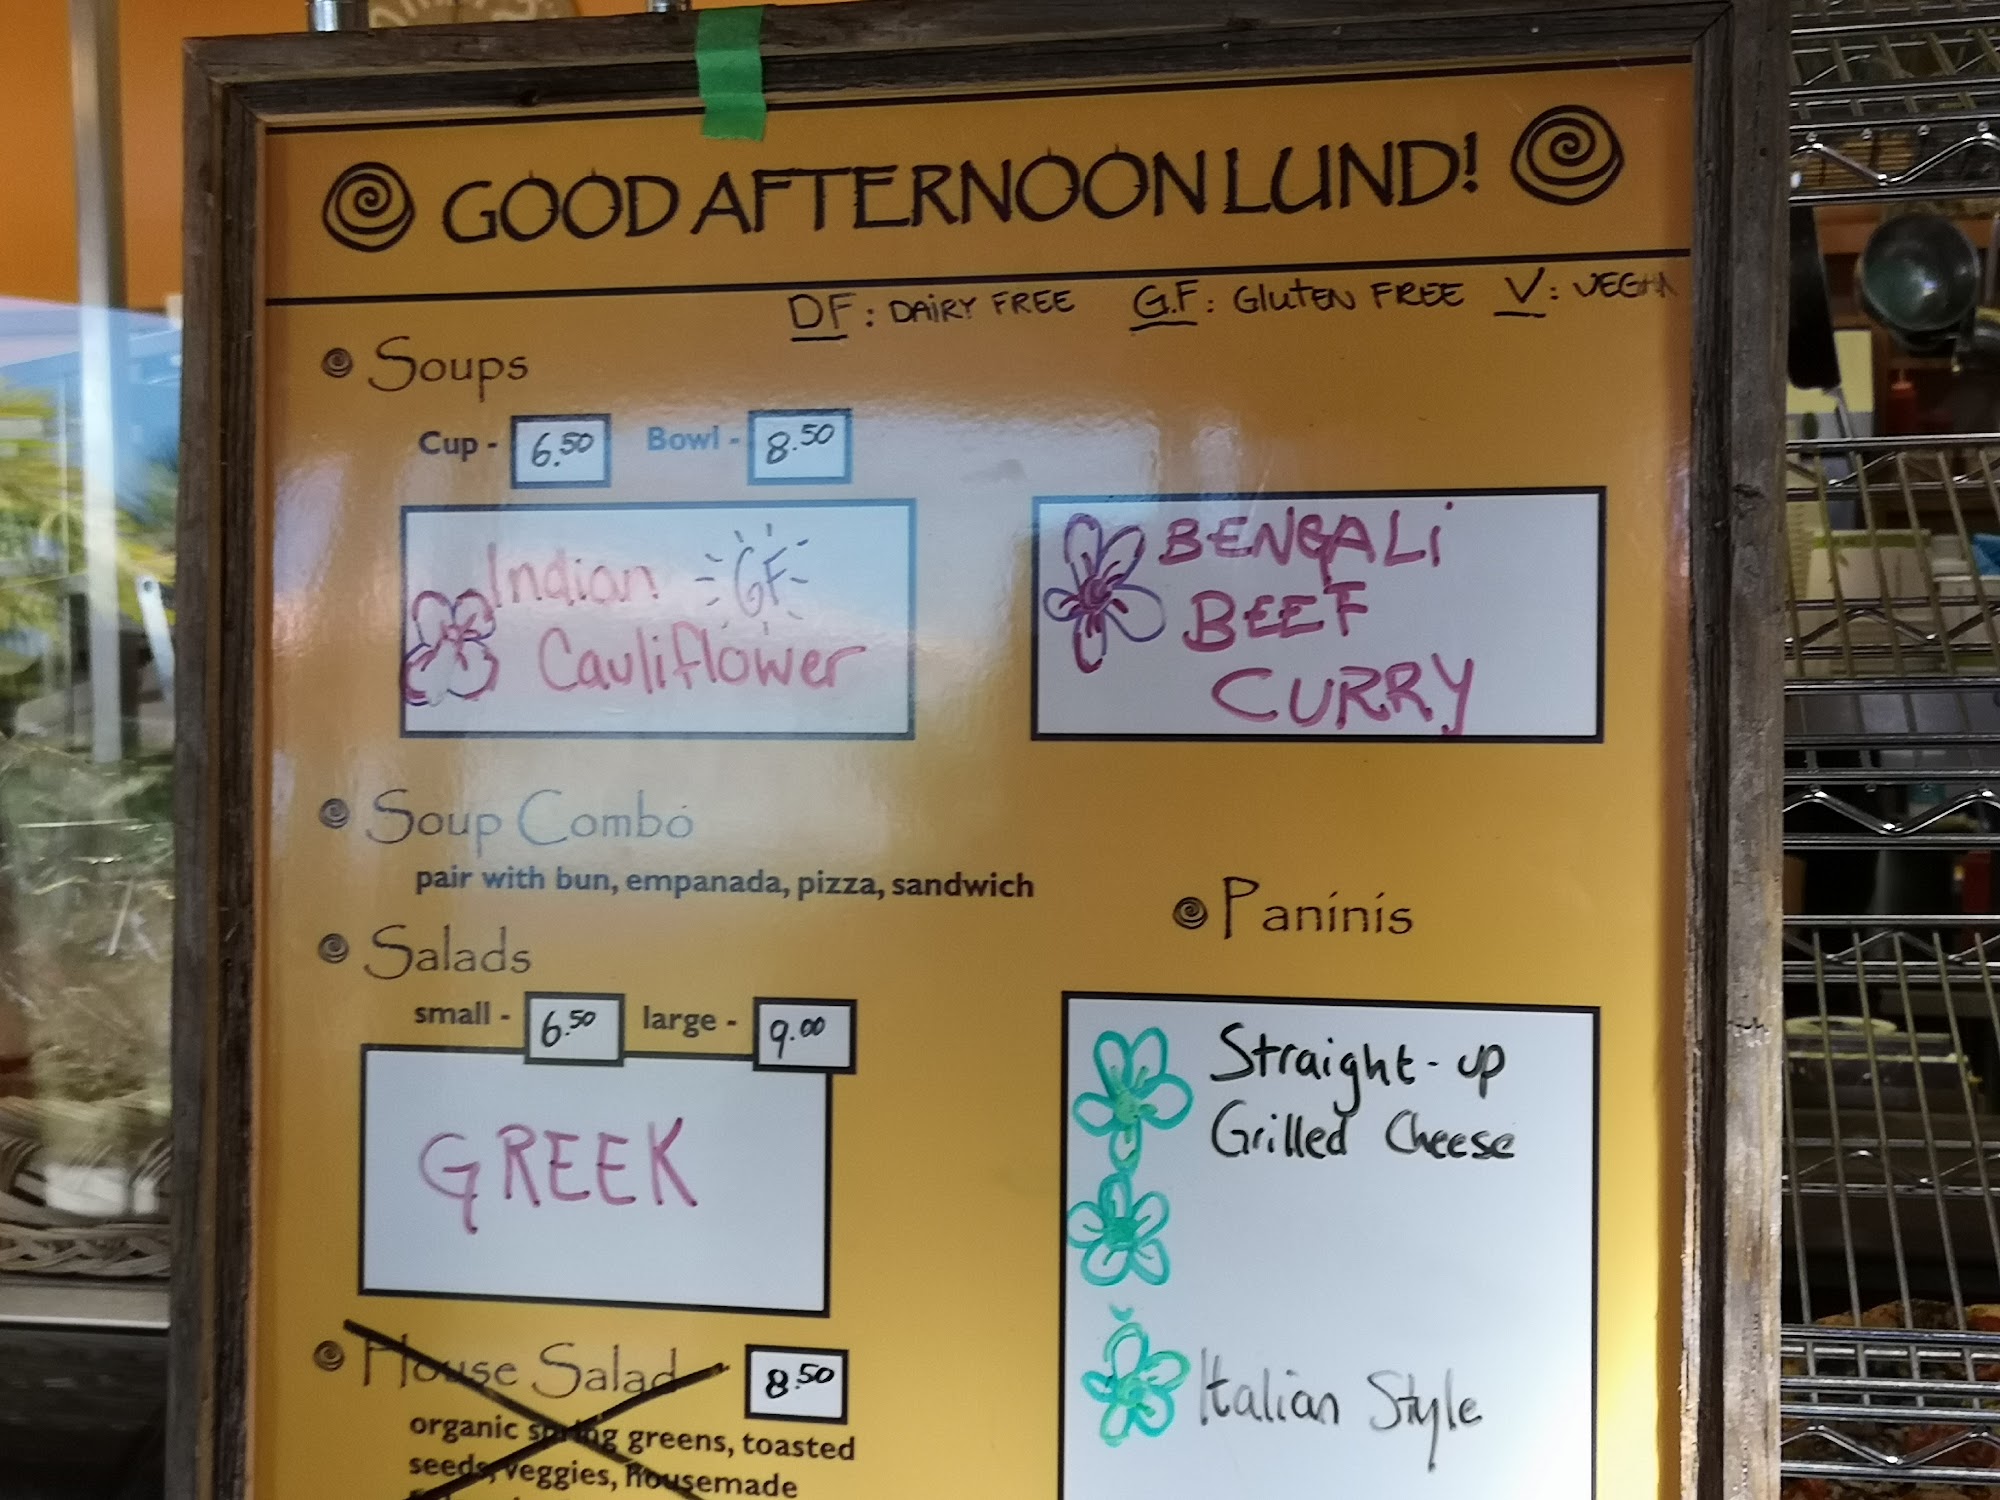 GOOD AFTERNOON LUND!
DF: DAIRY FREE G.F: GLUTEN FREE V: VEGAN
Soups
Cup - 6.50 Bowl - 8.50
Indian GF
Cauliflower
BENGALI
BEEF
CURRY
Soup Combo
pair with bun, empanada, pizza, sandwich
Salads
small - 6.50 large - 9.00
GREEK
House Salad 8.50
organic spring greens, toasted
seeds, veggies, housemade
Paninis
Straight-up
Grilled Cheese
Italian Style